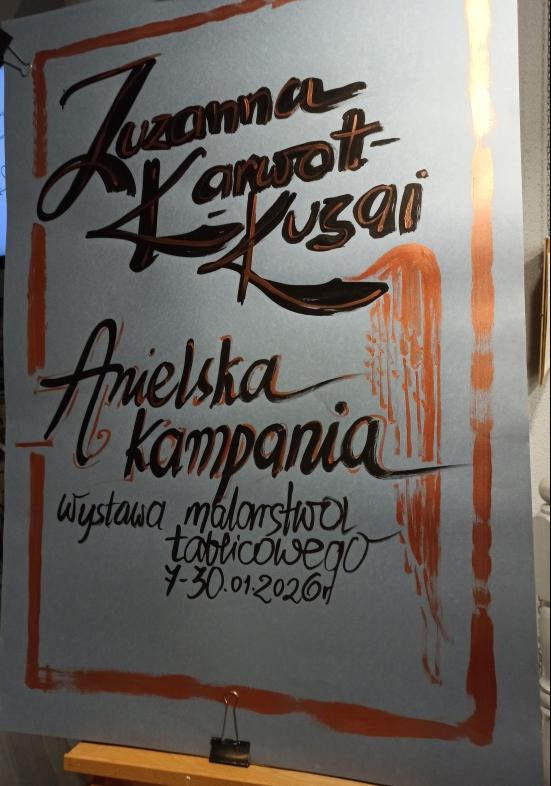 Zuzanna
Karwot-
Kuzaj
Anielska
kampania
wystawa malarstwa
tablicowego
7-30.01.2026r